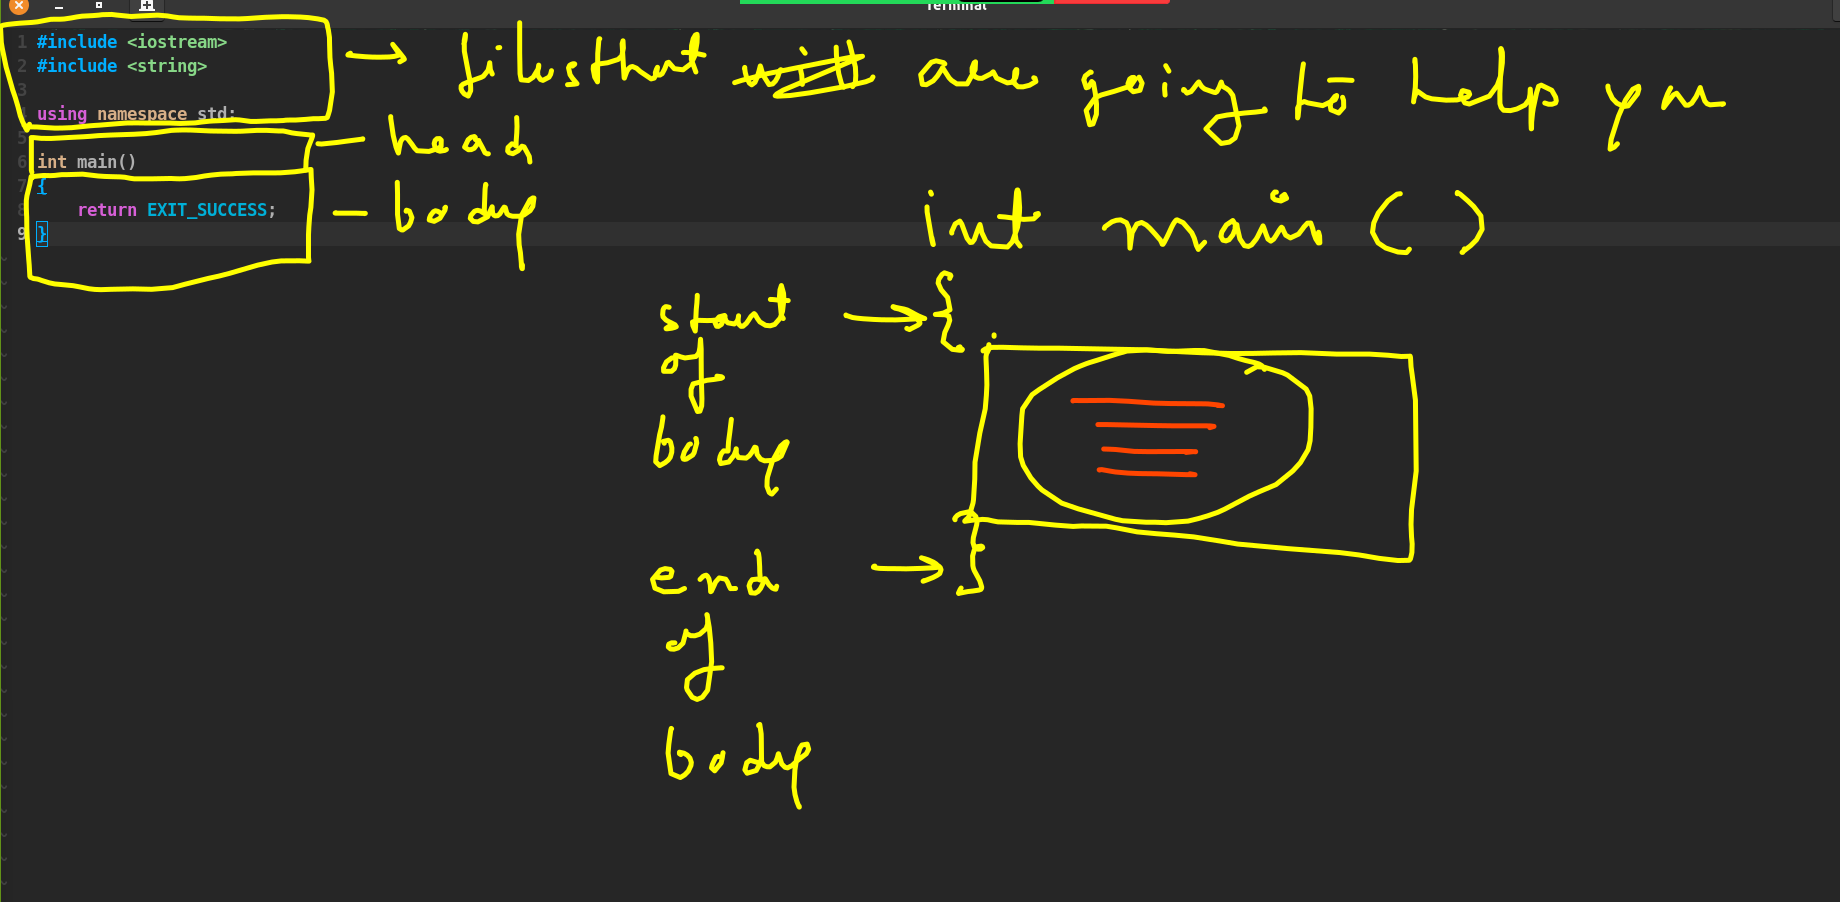 Terminal
1 #include <iostream>
2 #include <string>
3
using namespace std;
5
6 int main()
7 {
8 return EXIT_SUCCESS;
9 }
→ files that will are going to help you
— head
— body
int main ()
start → {
of
body
end → }
of
body